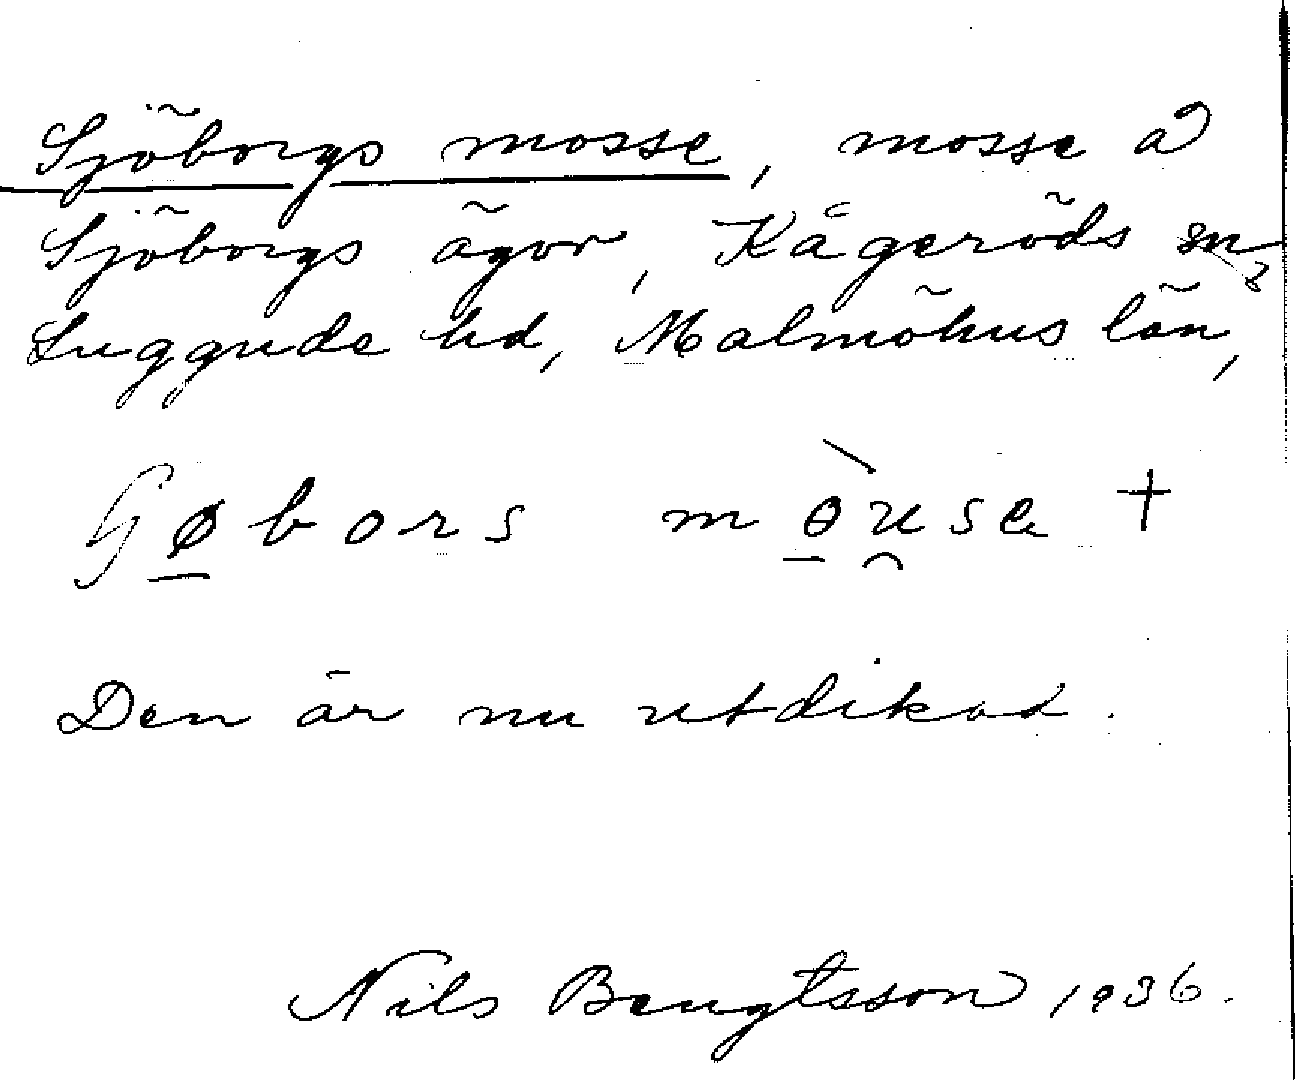 Sjöborgs mosse, mosse å
Sjöborgs ägor, Kågeröds sn,
Luggude hd, Malmöhus län,
me
Den är nu utdikad.
Nils Bengtsson 1936.